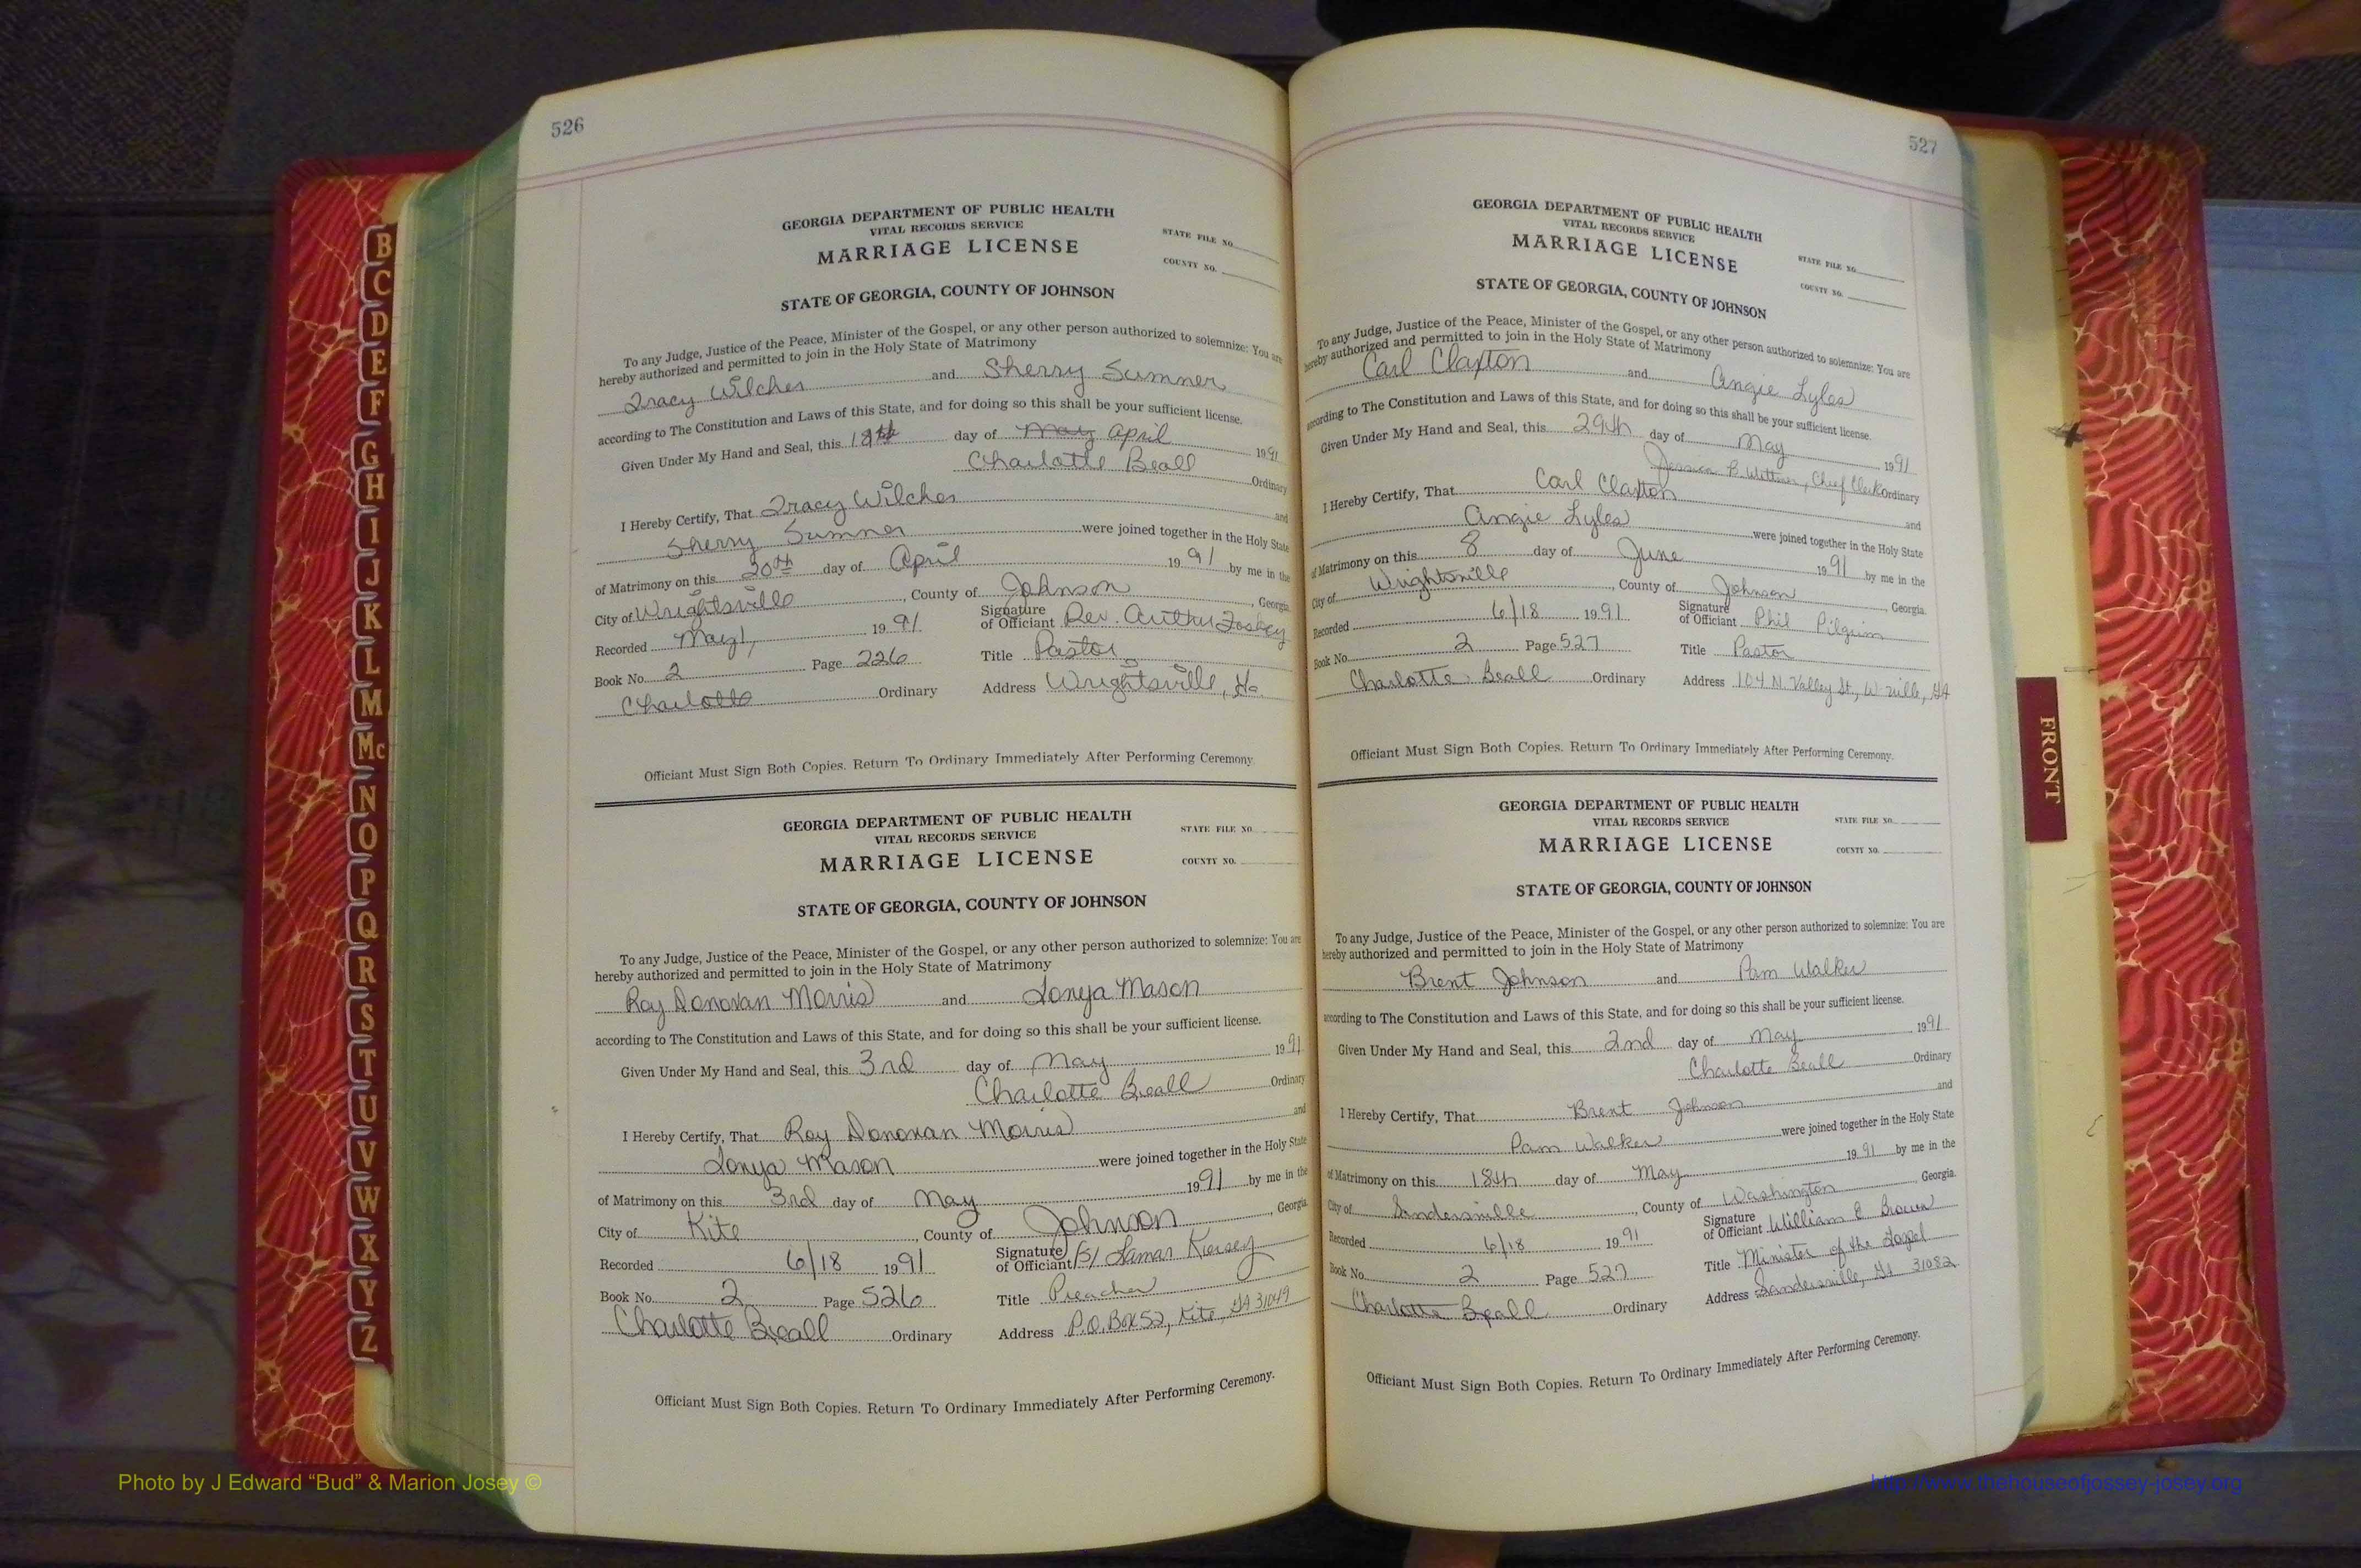 526
GEORGIA DEPARTMENT OF PUBLIC HEALTH
VITAL RECORDS SERVICE
MARRIAGE LICENSE
STATE FILE NO.
COUNTY NO.
STATE OF GEORGIA, COUNTY OF JOHNSON
To any Judge, Justice of the Peace, Minister of the Gospel, or any other person authorized to solemnize: You are
hereby authorized and permitted to join in the Holy State of Matrimony
Tracy Wilcher and Sherry Sumner
according to The Constitution and Laws of this State, and for doing so this shall be your sufficient license.
Given Under My Hand and Seal, this 18th day of May April 1991
Charlotte Beall Ordinary
I Hereby Certify, That Tracy Wilcher and
Sherry Sumner were joined together in the Holy State
of Matrimony on this 20th day of April 1991 by me in the
City of Wrightsville, County of Johnson, Georgia.
Recorded May 1, 1991 Signature of Officiant Rev. Arthur Foskey
Book No. 2 Page 226 Title Pastor
Charlotte Ordinary Address Wrightsville, Ga.
Officiant Must Sign Both Copies. Return To Ordinary Immediately After Performing Ceremony.
GEORGIA DEPARTMENT OF PUBLIC HEALTH
VITAL RECORDS SERVICE
MARRIAGE LICENSE
STATE FILE NO.
COUNTY NO.
STATE OF GEORGIA, COUNTY OF JOHNSON
To any Judge, Justice of the Peace, Minister of the Gospel, or any other person authorized to solemnize: You are
hereby authorized and permitted to join in the Holy State of Matrimony
Roy Donovan Morris and Tonya Mason
according to The Constitution and Laws of this State, and for doing so this shall be your sufficient license.
Given Under My Hand and Seal, this 3rd day of May 1991
Charlotte Beall Ordinary
I Hereby Certify, That Roy Donovan Morris and
Tonya Mason were joined together in the Holy State
of Matrimony on this 3rd day of May 1991 by me in the
City of Kite, County of Johnson, Georgia.
Recorded 6/18 1991 Signature of Officiant /s/ Lamar Kersey
Book No. 2 Page 526 Title Preacher
Charlotte Beall Ordinary Address P.O. Box 52, Kite, GA 31049
Officiant Must Sign Both Copies. Return To Ordinary Immediately After Performing Ceremony.
527
GEORGIA DEPARTMENT OF PUBLIC HEALTH
VITAL RECORDS SERVICE
MARRIAGE LICENSE
STATE FILE NO.
COUNTY NO.
STATE OF GEORGIA, COUNTY OF JOHNSON
To any Judge, Justice of the Peace, Minister of the Gospel, or any other person authorized to solemnize: You are
hereby authorized and permitted to join in the Holy State of Matrimony
Carl Claxton and Angie Lyles
according to The Constitution and Laws of this State, and for doing so this shall be your sufficient license.
Given Under My Hand and Seal, this 29th day of May 1991
B. Chief Clerk Ordinary
I Hereby Certify, That Carl Claxton and
Angie Lyles were joined together in the Holy State
of Matrimony on this 8 day of June 1991 by me in the
City of Wrightsville, County of Johnson, Georgia.
Recorded 6/18 1991 Signature of Officiant Phil Pilgrim
Book No. 2 Page 527 Title Pastor
Charlotte Beall Ordinary Address 104 N. Valley St., W'ville, GA
Officiant Must Sign Both Copies. Return To Ordinary Immediately After Performing Ceremony.
GEORGIA DEPARTMENT OF PUBLIC HEALTH
VITAL RECORDS SERVICE
MARRIAGE LICENSE
STATE FILE NO.
COUNTY NO.
STATE OF GEORGIA, COUNTY OF JOHNSON
To any Judge, Justice of the Peace, Minister of the Gospel, or any other person authorized to solemnize: You are
hereby authorized and permitted to join in the Holy State of Matrimony
Brent Johnson and Pam Walker
according to The Constitution and Laws of this State, and for doing so this shall be your sufficient license.
Given Under My Hand and Seal, this 2nd day of May 1991
Charlotte Beall Ordinary
I Hereby Certify, That Brent Johnson and
Pam Walker were joined together in the Holy State
of Matrimony on this 18th day of May 1991 by me in the
City of Sandersville, County of Washington, Georgia.
Recorded 6/18 1991 Signature of Officiant William E Brown
Book No. 2 Page 527 Title Minister of the Gospel
Charlotte Beall Ordinary Address Sandersville, Ga 31082
Officiant Must Sign Both Copies. Return To Ordinary Immediately After Performing Ceremony.
B
C
D
E
F
G
H
I
J
K
L
M
Mc
N
O
P
Q
R
S
T
U
V
W
X
Y
Z
FRONT
Photo by J Edward “Bud” & Marion Josey ©
http://www.thehouseofjossey-josey.org